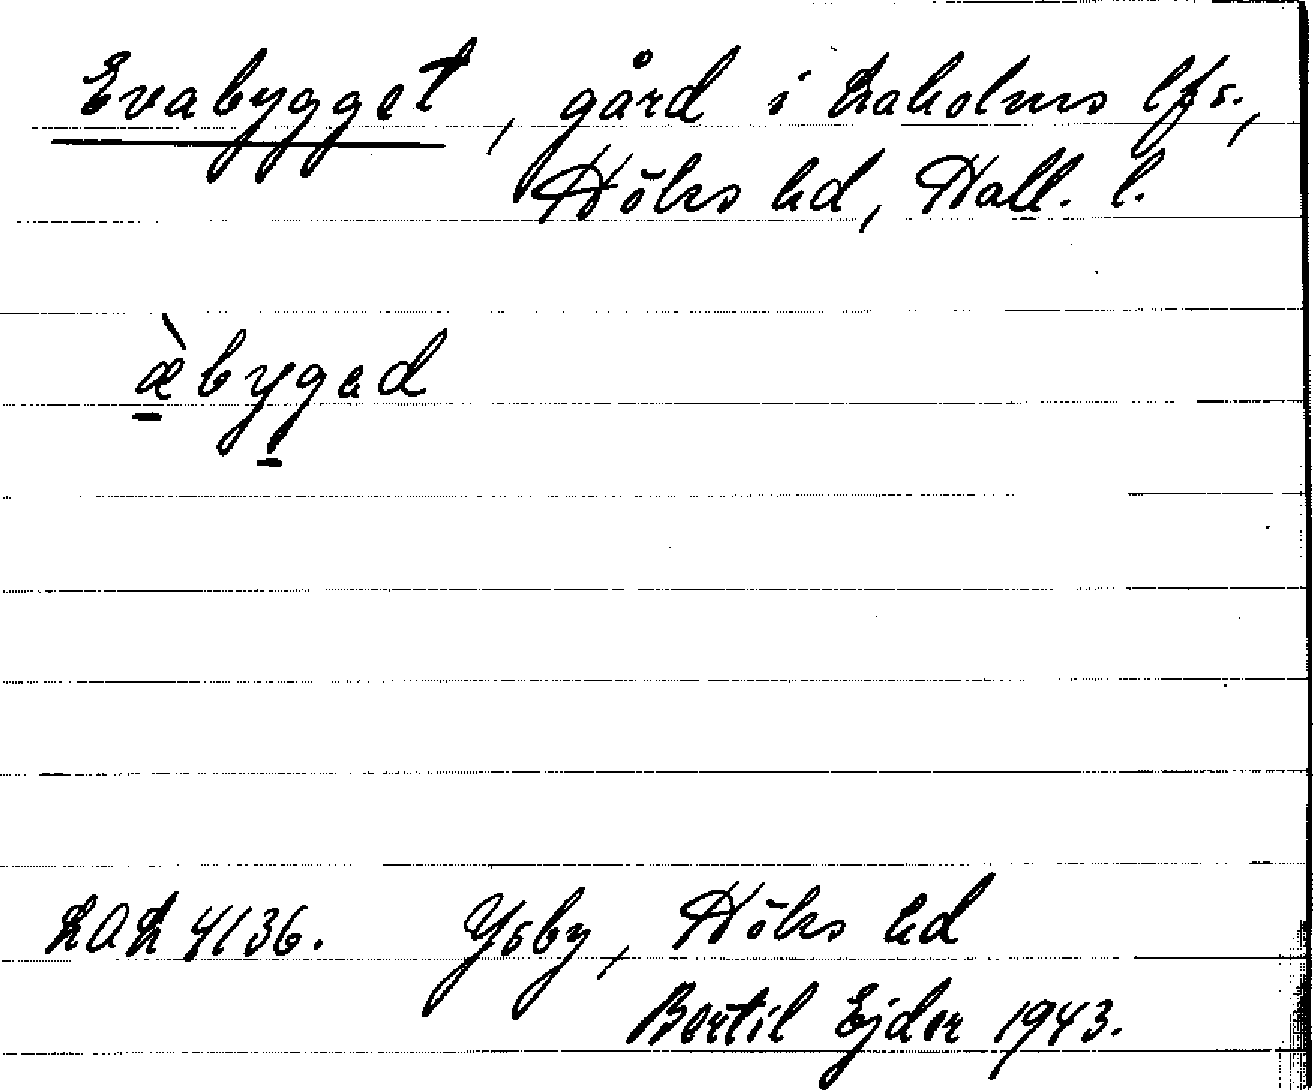 Evabygget, gård i Laholms lfs.,
Höks hd, Hall. l.
æ̀bygad
LAL 4136. Ysby, Höks hd
Bertil Ejder 1943.